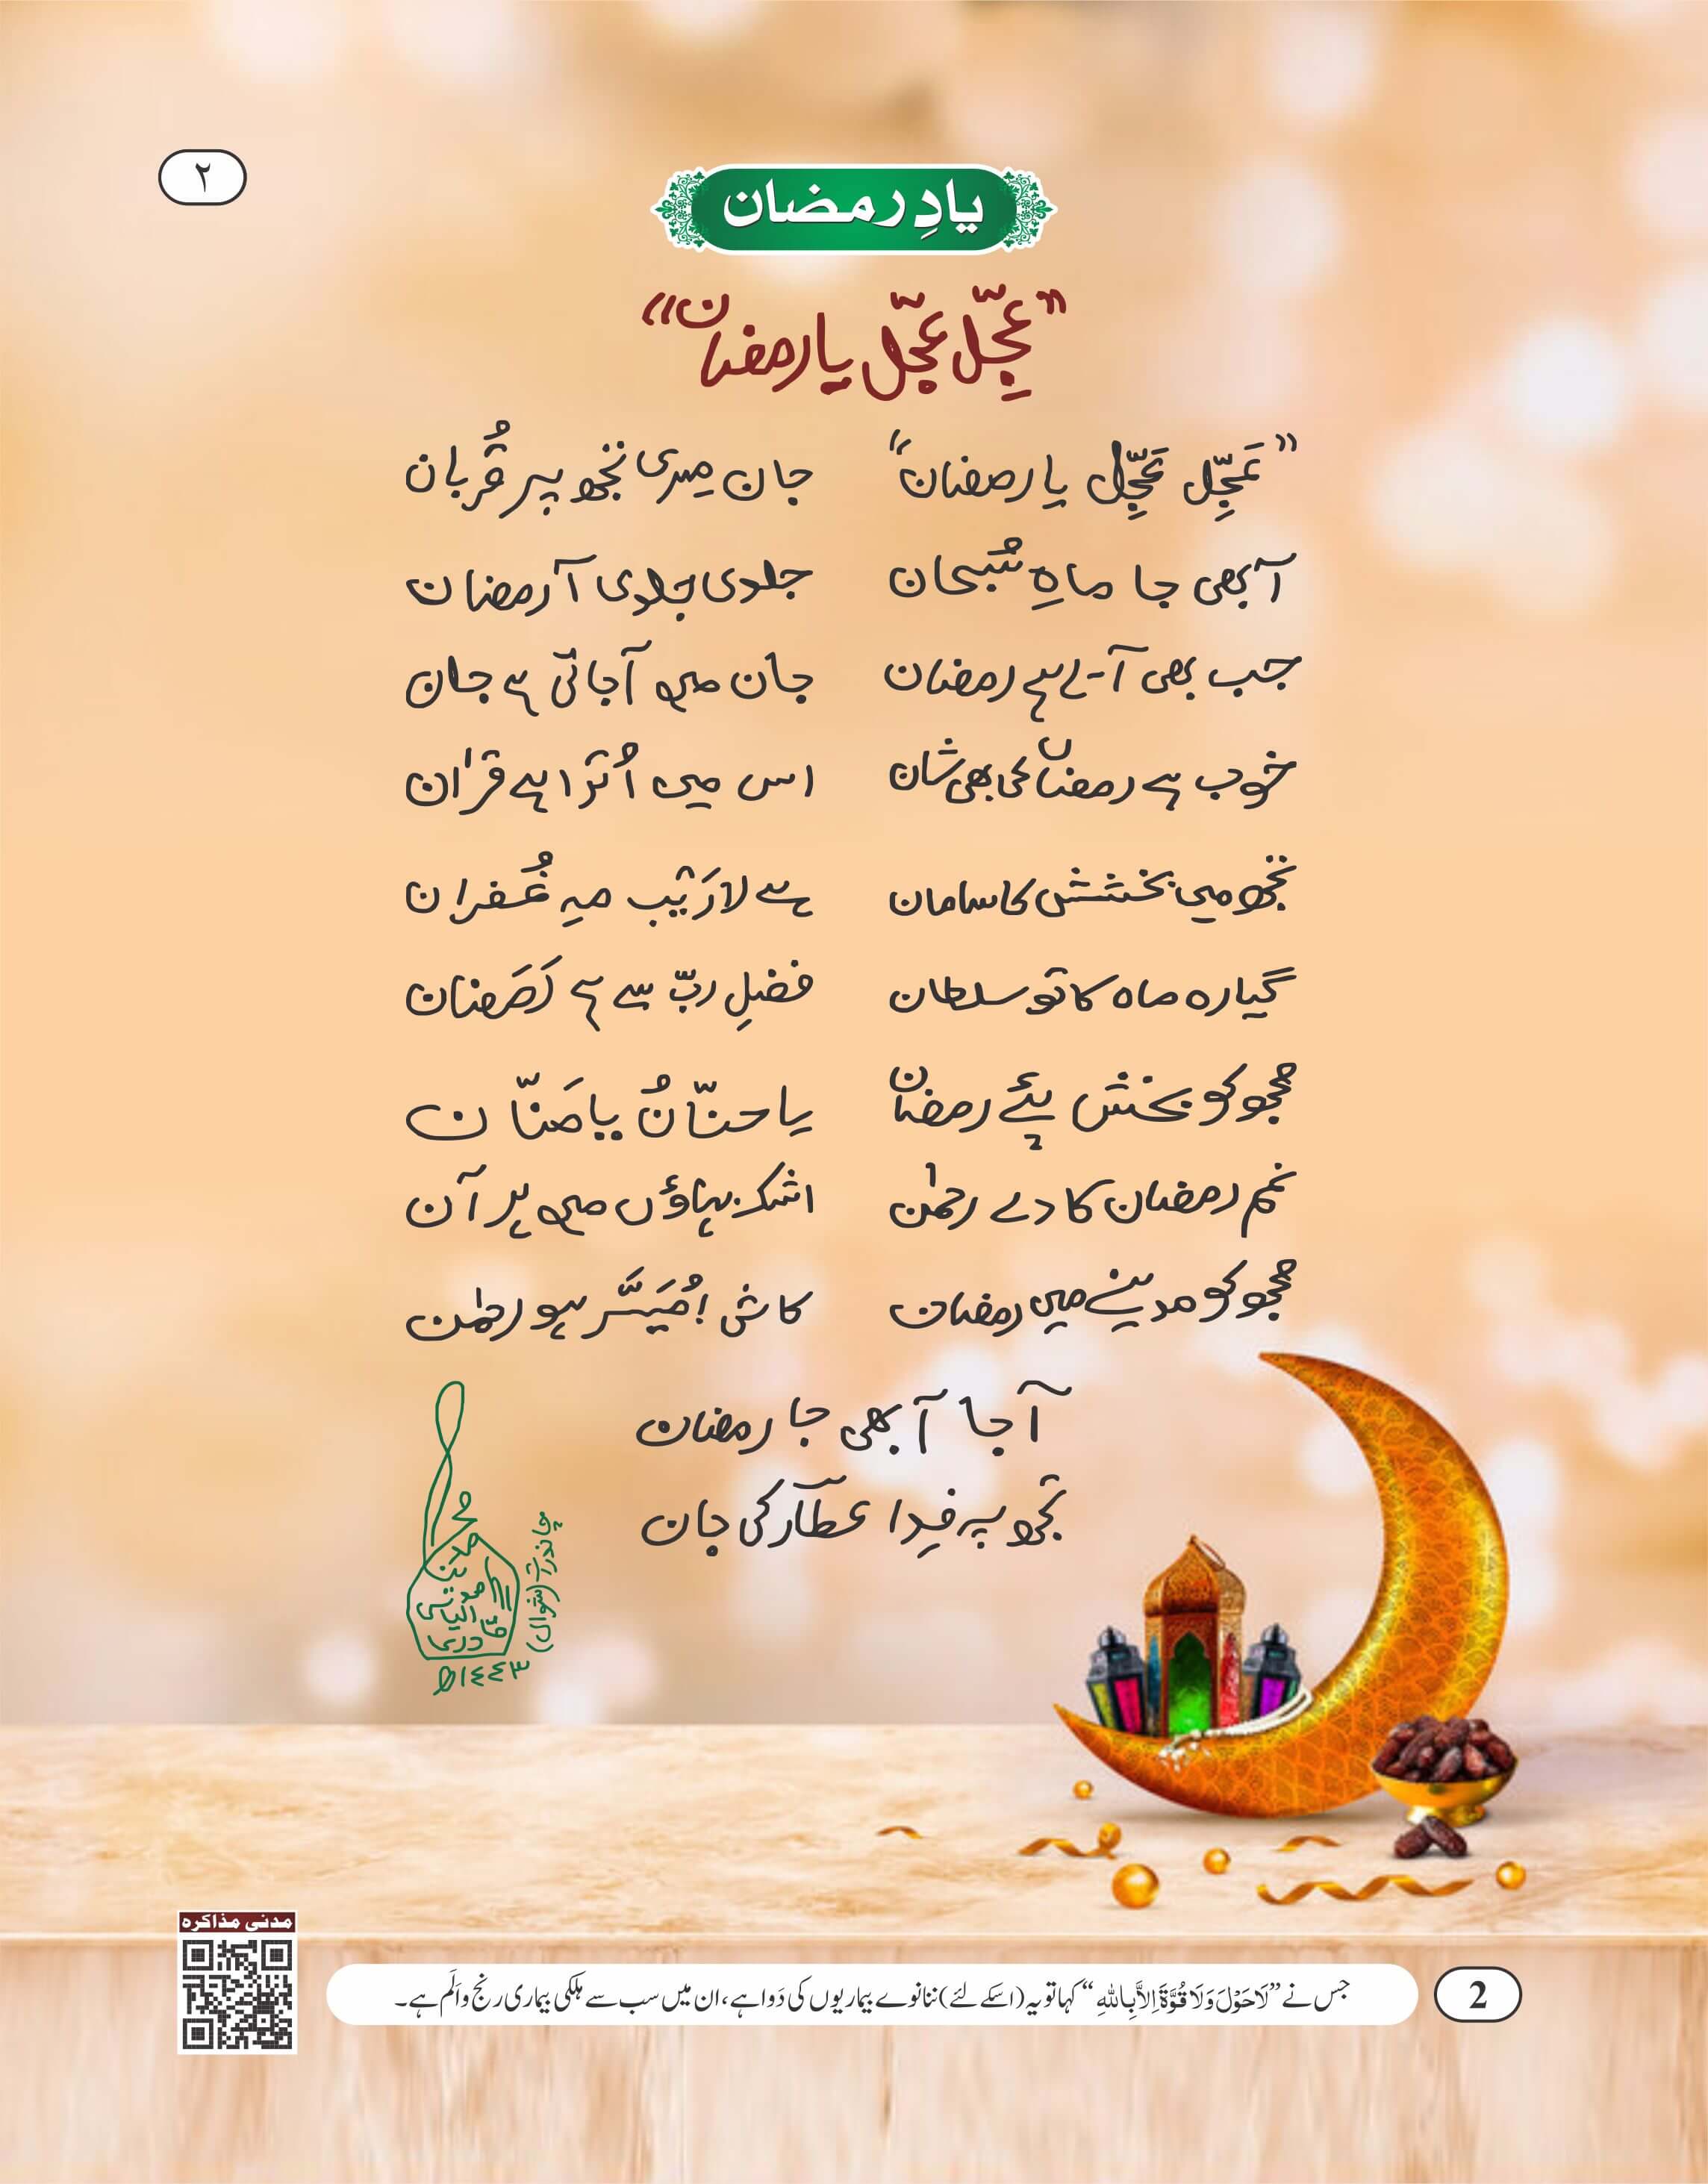 ۲
یادِ رمضان
”عَجِّل عَجِّل یا رمضان“
”عَجِّل عَجِّل یا رمضان“ جان میری تجھ پہ قُربان
آ بھی جا ماہِ سُبحان جلدی جلدی آ رمضان
جب بھی آئے ہے رمضان جان میں آجاتی ہے جان
خوب ہے رمضاں کی بھی شان اس میں اُترا ہے قراٰن
تجھ میں بخشش کا سامان ہے لارَیْب مہِ غُفران
گیارہ ماہ کا تو سلطان فضلِ ربّ سے ہے رَمَضان
مجھ کو بخش پئے رمضان یا حنّانُ یا مَنّان
غم رمضان کا دے رحمٰن اشک بہاؤں میں ہر آن
مجھ کو مدینے میں رمضان کاش! مُیَسَّر ہو رحمٰن
آ جا آ بھی جا رمضان
تجھ پہ فِدا عطّار کی جان
محمد
الیاس
قادری
چاند رات (شوال)
۱۴۴۳ھ
مدنی مذاکرہ
جس نے ”لَاحَوْلَ وَلَا قُوَّۃَ اِلاَّ بِاللہِ“ کہا تو یہ (اسکے لئے) ننانوے بیماریوں کی دَوا ہے، ان میں سب سے ہلکی بیماری رنج و اَلَم ہے۔
2